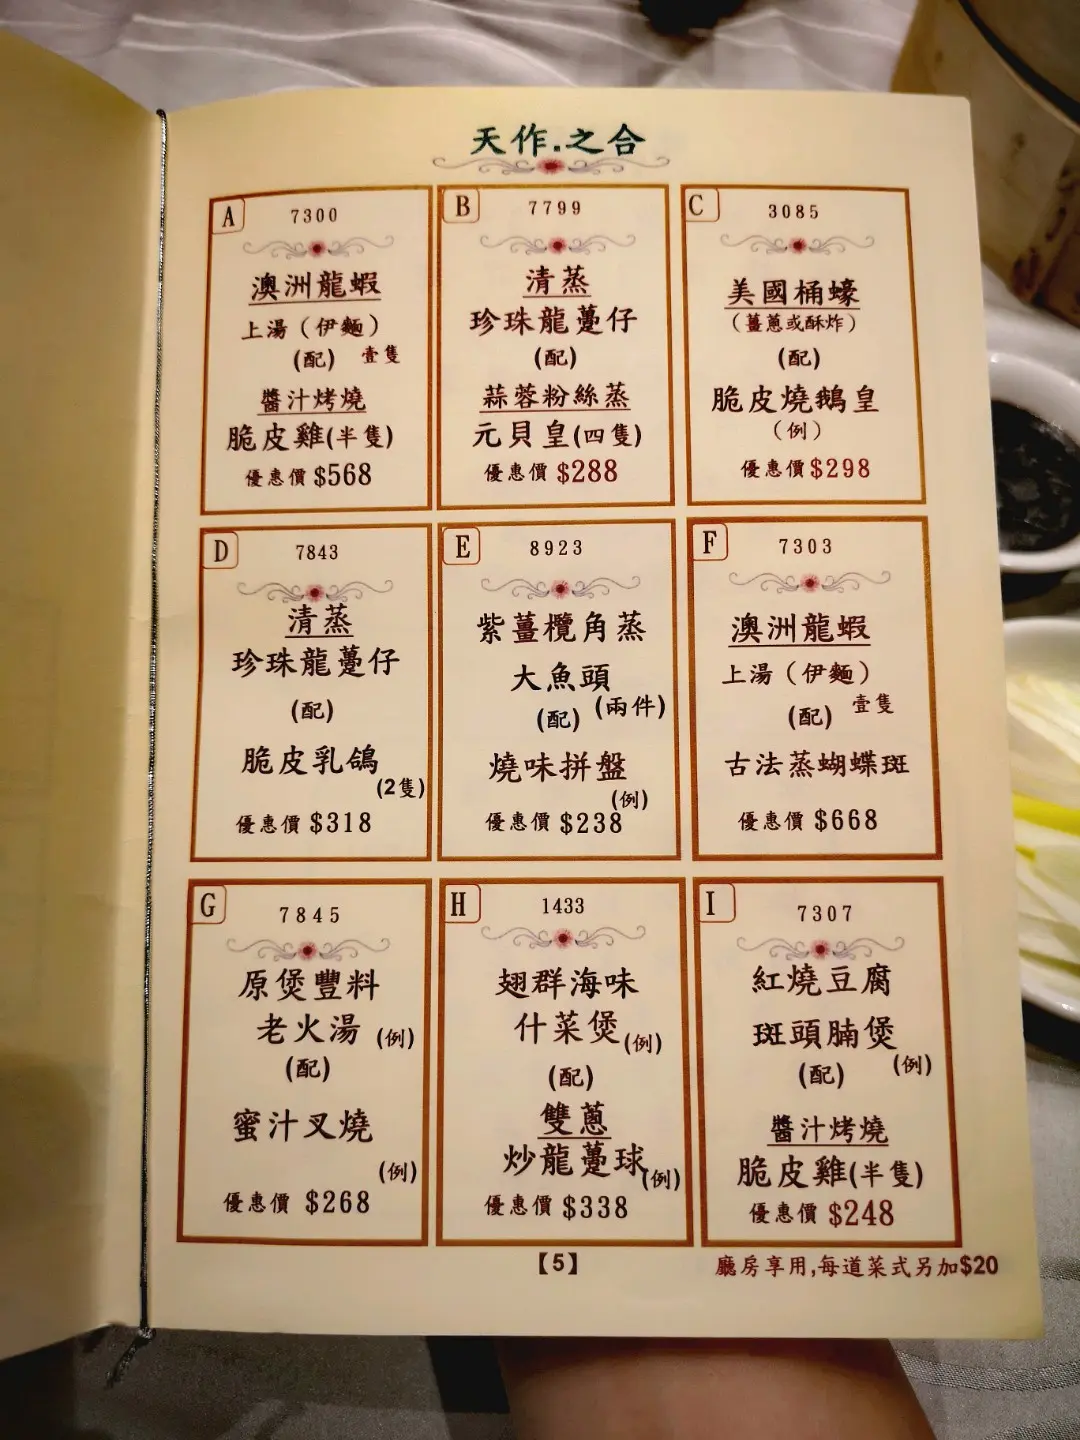 天作.之合
A
7300
澳洲龍蝦
上湯（伊麵）
(配) 壹隻
醬汁烤燒
脆皮雞(半隻)
優惠價 $568
B
7799
清蒸
珍珠龍躉仔
(配)
蒜蓉粉絲蒸
元貝皇(四隻)
優惠價 $288
C
3085
美國桶蠔
（薑蔥或酥炸）
(配)
脆皮燒鵝皇
（例）
優惠價 $298
D
7843
清蒸
珍珠龍躉仔
(配)
脆皮乳鴿
(2隻)
優惠價 $318
E
8923
紫薑欖角蒸
大魚頭
(配) (兩件)
燒味拼盤
(例)
優惠價 $238
F
7303
澳洲龍蝦
上湯（伊麵）
(配) 壹隻
古法蒸蝴蝶斑
優惠價 $668
G
7845
原煲豐料
老火湯 (例)
(配)
蜜汁叉燒
(例)
優惠價 $268
H
1433
翅群海味
什菜煲(例)
(配)
雙蔥
炒龍躉球(例)
優惠價 $338
I
7307
紅燒豆腐
斑頭腩煲
(配) (例)
醬汁烤燒
脆皮雞(半隻)
優惠價 $248
【5】
廳房享用,每道菜式另加$20